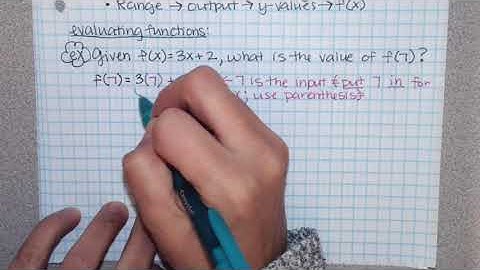 • Range → output → y-values → f(x)
evaluating functions:
ex Given f(x) = 3x + 2, what is the value of f(7)?
f(7) = 3(7) + ← 7 is the input & put 7 in for
; use parenthesis